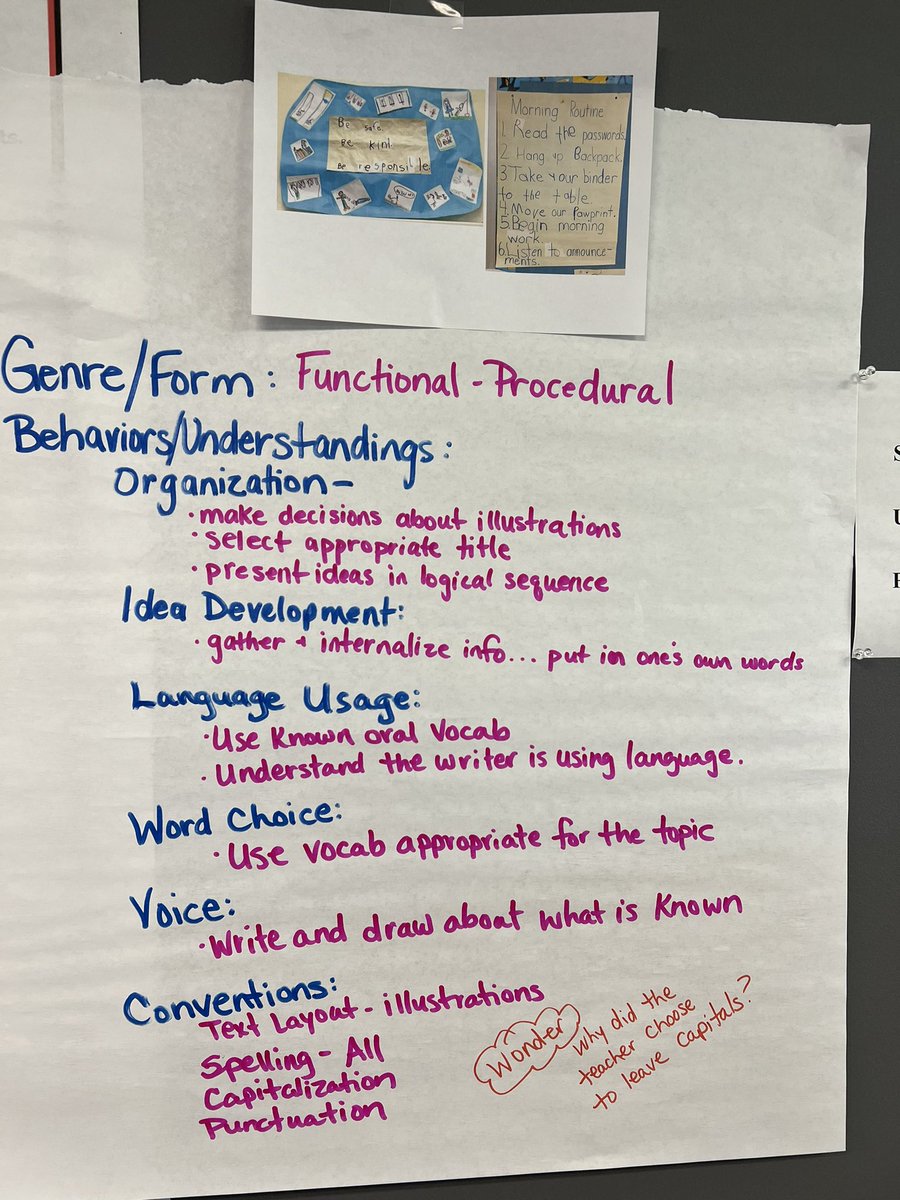 Be safe.
Be kind.
Be responsible.
Morning Routine
1. Read the passwords.
2. Hang up Backpack.
3 Take your binder
to the table.
4. Move our Pawprint.
5. Begin morning
work.
6. Listen to announce-
ments.
Genre/Form: Functional - Procedural
Behaviors/Understandings:
Organization -
• make decisions about illustrations
• select appropriate title
• present ideas in logical sequence
Idea Development:
• gather + internalize info... put in one's own words
Language Usage:
• Use known oral vocab
• Understand the writer is using language.
Word Choice:
• Use vocab appropriate for the topic
Voice:
• Write and draw about what is known
Conventions:
Text Layout - illustrations
Spelling - All
Capitalization
Punctuation
Wonder
Why did the
teacher choose
to leave capitals?
S
U